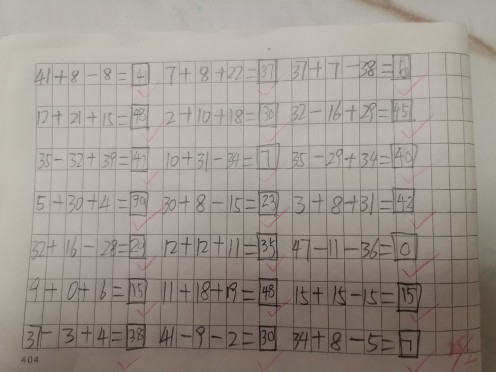 41+8-8=4 7+8+22=37 37+7-38=6
12+21+15=48 2+10+18=30 32-16+29=45
35-32+39=42 10+31-34=7 35-29+34=40
5+30+4=39 30+8-15=23 3+8+31=42
32+16-28=20 12+12+11=35 47-11-36=0
9+0+6=15 11+18+19=48 15+15-15=15
37-3+4=38 41-9-2=30 34+8-5=7
404